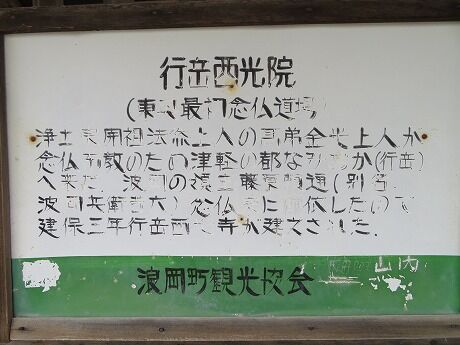 行岳西光院
(東 最初念仏道場)
浄土 開祖法然上人の高弟金光上人が
念仏 教のため津軽の都な (行岳)
へ来た 波岡の領主藤原 通(別名
波岡兵衛 大) 念仏 に帰依したので
建保三年行岳西光寺が建立された.
浪岡町観光協会
山内